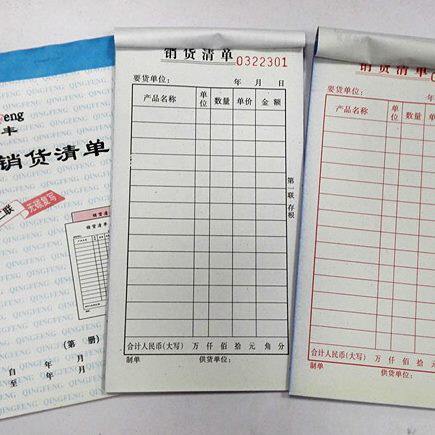 feng
丰
销货清单
联
无碳复写
销货清单
(第 册)
自 年 月
至 年 月
QINGFENG QINGFENG
销货清单 0322301
要货单位: 年 月 日
产品名称 单位 数量 单价 金额
第一联 存根
合计人民币(大写) 万 仟 佰 拾 元 角 分
制单 供货单位:
销货清单
要货单位: 年
产品名称 单位 数量 单价 金
合计人民币(大写) 万 仟 佰 拾 元
制单 供货单位: